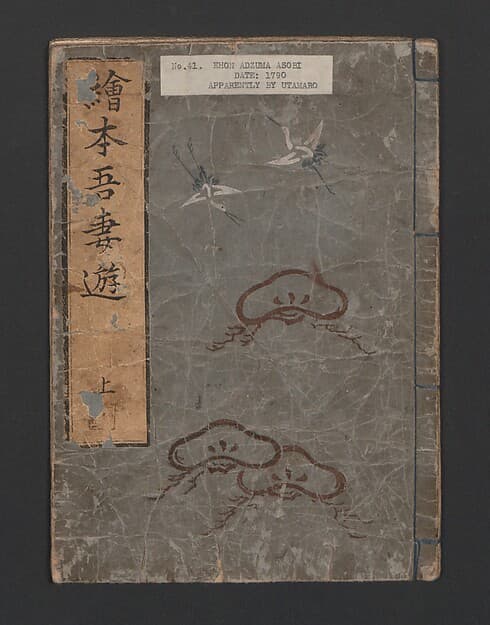 No.41. EHON ADZUMA ASOBI
DATE: 1790
APPARENTLY BY UTAMARO
繪本吾妻遊
上